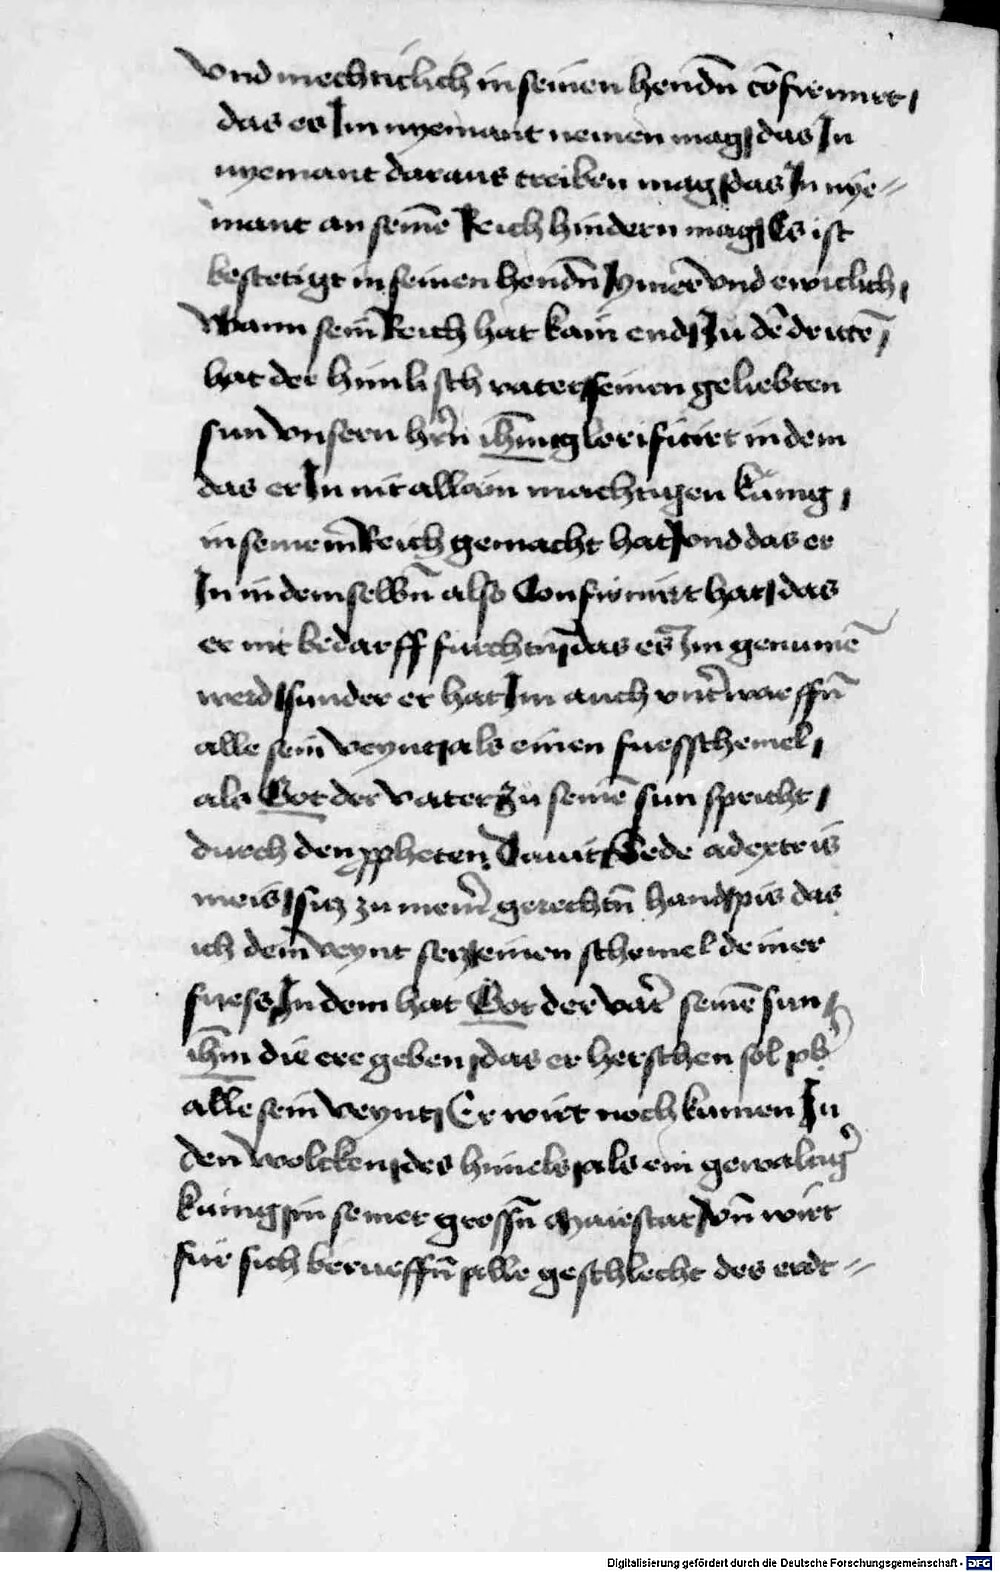 vnd mechticlich in seinen hendn̄ cōfirmirt /
das es Im nyemant nemen mag / das In
nyemant daraus treiben mag / das In nye=
mant an seinē Reich hindern mag / Es ist
bestetigt in seinen hendn̄ Ymēr vnd ewiclich /
Wann sein Reich hat kain end / Zu dē drittē /
hat der himlisch vater seinen geliebten
sun vnsern hr̄n ih̄m glorificirt in dem
das er In nit allain machtigen kunig /
in seinem Reich gemacht hat / vnd das er
In in demselbn̄ also Confirmirt hat / das
er nit bedarff furchtn̄ / das es Im genumē
werd / sunder er hat Im auch vnt̄ warffn̄
alle sein veynt / als einen fuesschemel /
als Got der vater zu seinē sun spricht /
durch den ꝓpheten Dauit / Sede adextris
meis / sitz zu mein̄ gerechtn̄ hand / pis das
ich dein veynt setz / einen schemel deiner
fuess / In dem hat Got der vat̄ seinē sun /
ih̄m die ere geben / das er herschen sol vb̄
alle sein veynt / Er wirt noch kumen In
den wolcken / des himels / als ein gewaltiḡ
kunig / in seiner grossn̄ Maiestat / vn̄ wirt
fur sich berueffn̄ / alle geschlecht des erdt=
Digitalisierung gefördert durch die Deutsche Forschungsgemeinschaft - DFG